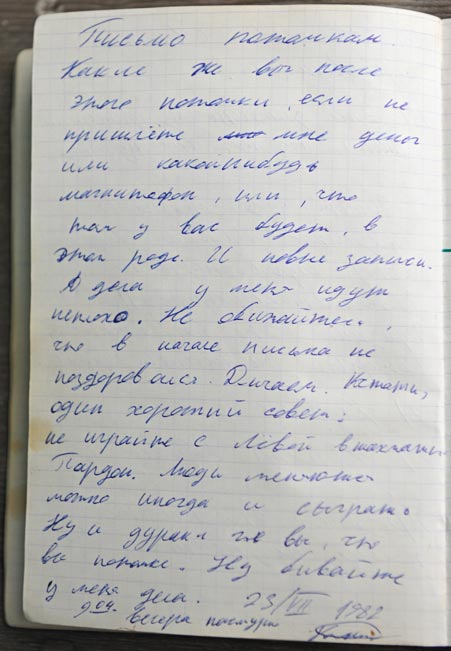 Письмо потомкам.
Какие же вы после
этого потомки, если не
пришлёте мне денег
или какойнибудь
магнитофон, или, что
там у вас будет, в
этом роде. И новые записи.
А дела у меня идут
неплохо. Не обижайтесь,
что в начале письма не
поздоровался. Дичаем. Кстати,
один хороший совет:
не играйте с Лёвой в шахматы
Пардон. Люди меняются
можно иногда и сыграть
Ну и дураки же вы, что
вы потомки. Ну бывайте
у меня дела. 23/VII 1982
9 09 вечера